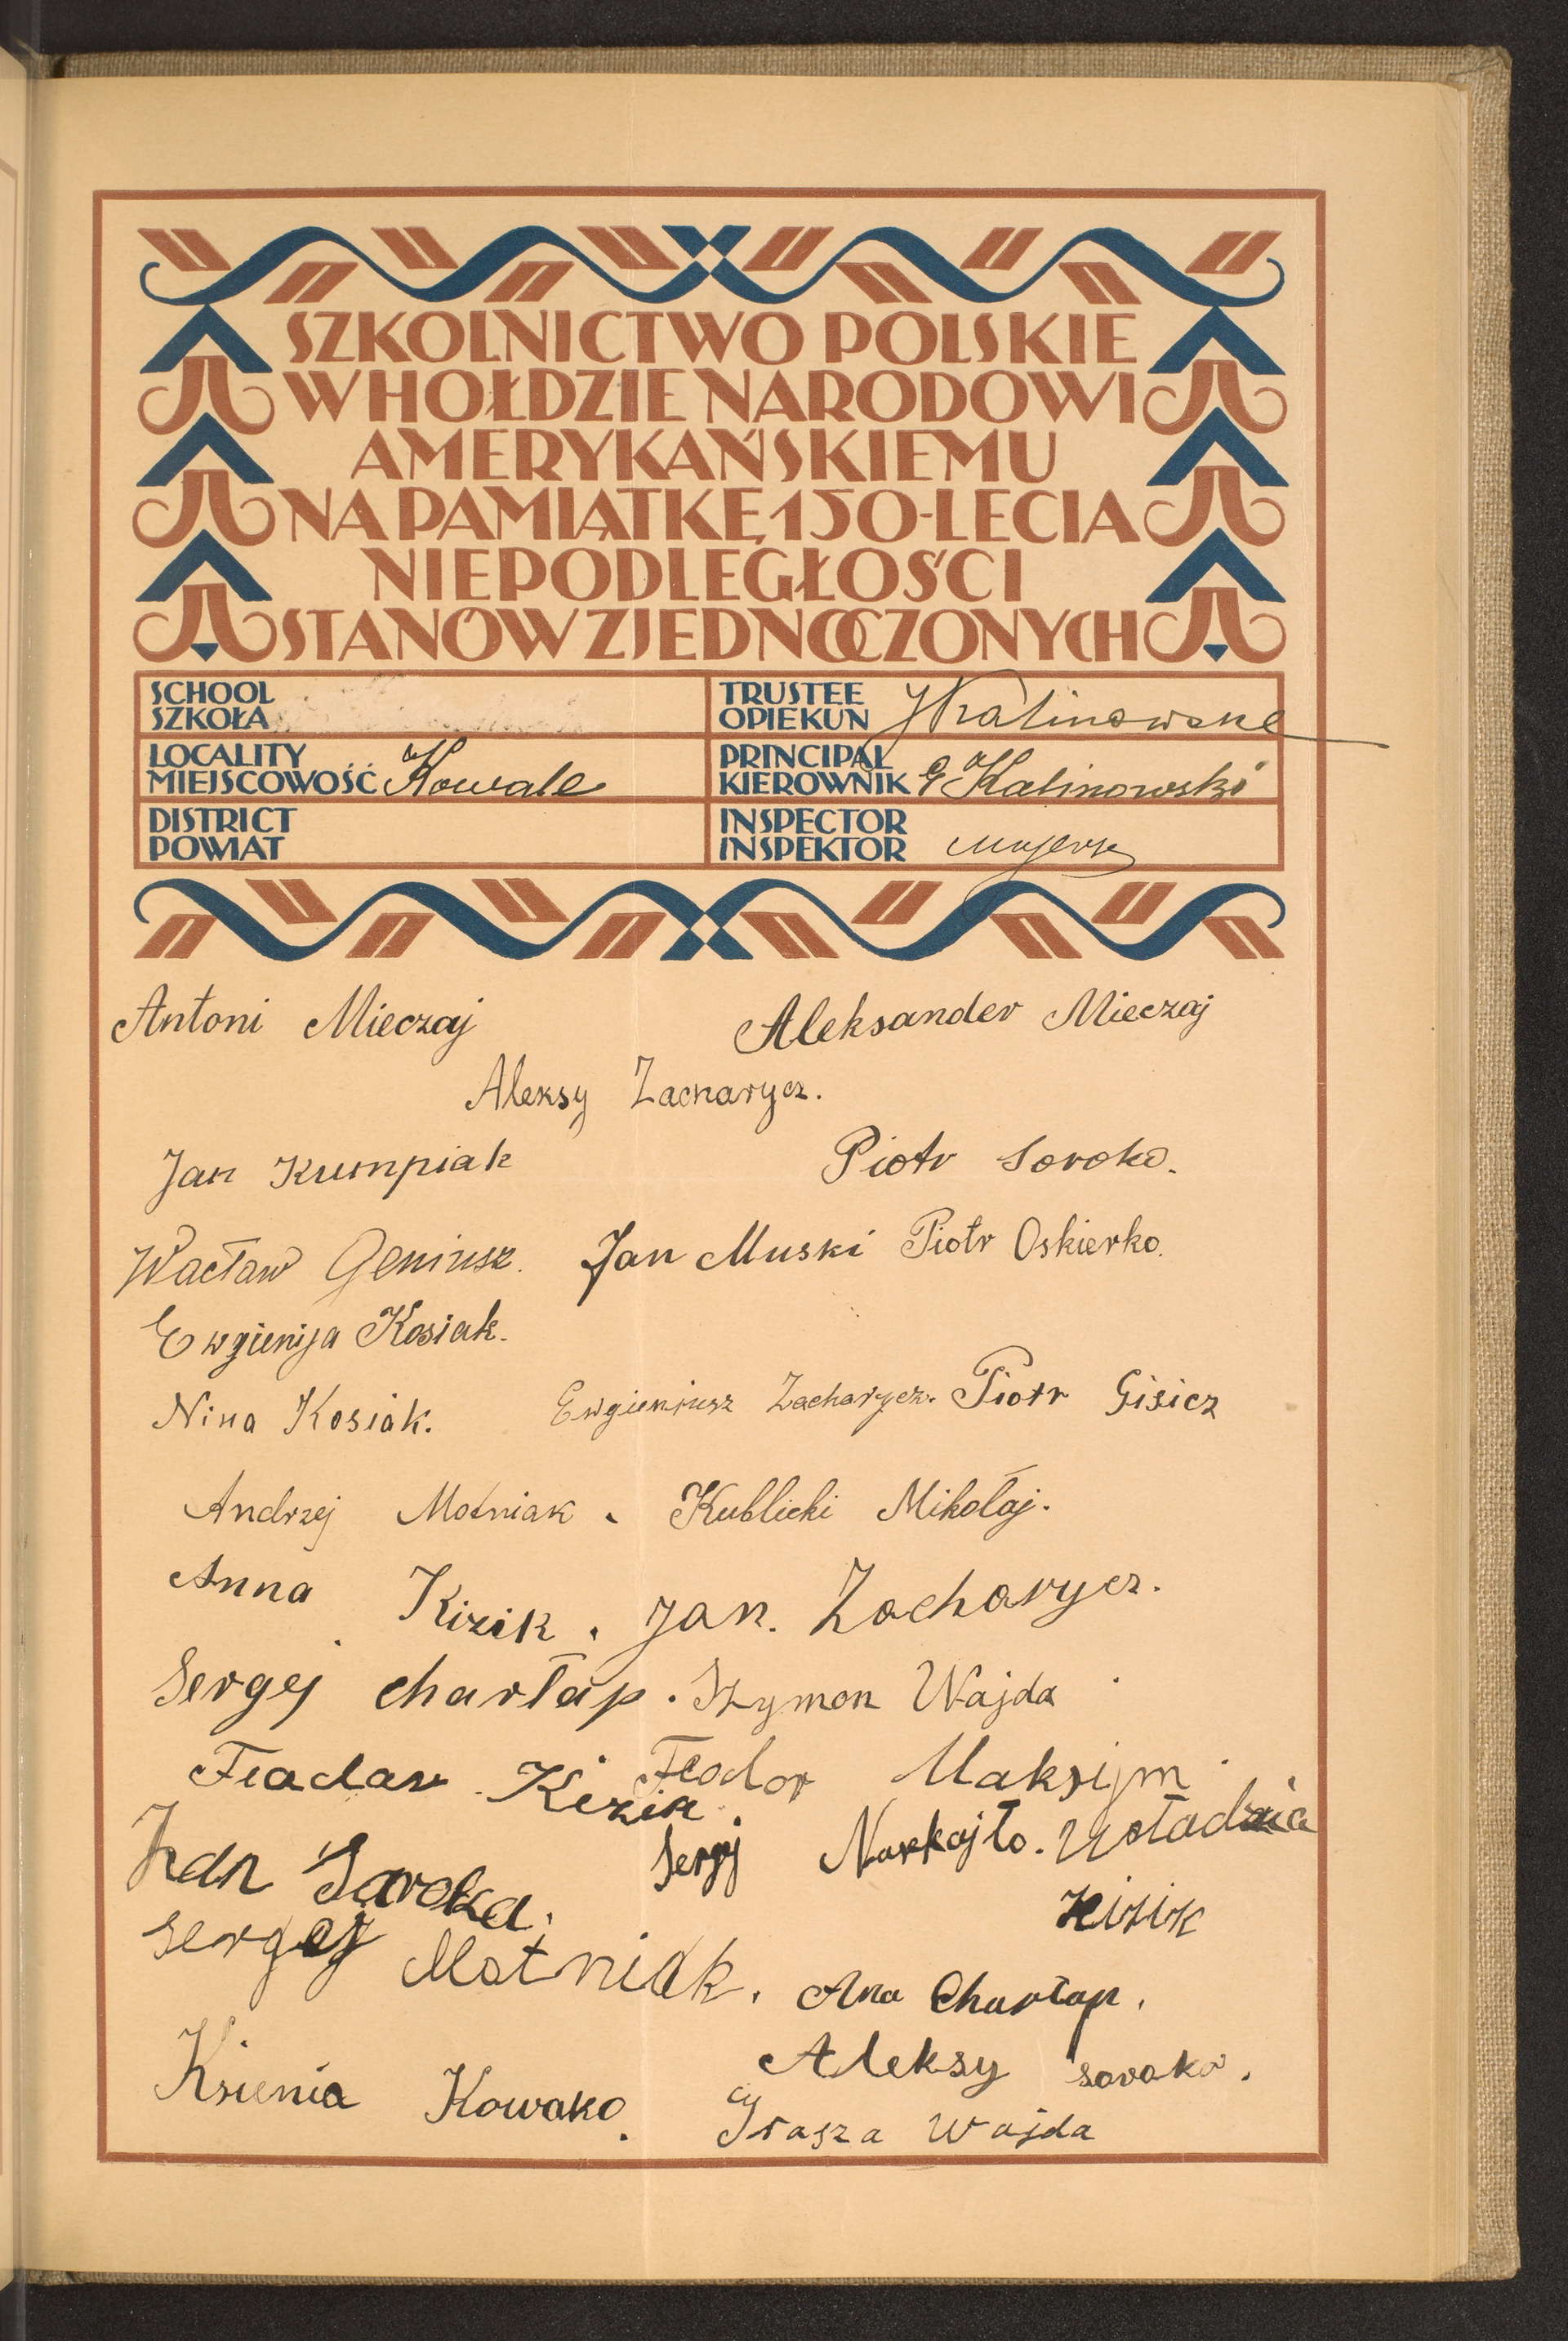 SZKOLNICTWO POLSKIE
W HOŁDZIE NARODOWI
AMERYKAŃSKIEMU
NA PAMIĄTKĘ 150-LECIA
NIEPODLEGŁOŚCI
STANÓW ZJEDNOCZONYCH
SCHOOL
SZKOŁA
TRUSTEE
OPIEKUN
LOCALITY
MIEJSCOWOŚĆ Kowale
PRINCIPAL
KIEROWNIK G Kalinowski
DISTRICT
POWIAT
INSPECTOR
INSPEKTOR
Antoni Mieczaj Aleksander Mieczaj
Aleksy Zacharycz.
Jan Krumpiak Piotr Soroko.
Wacław Geniusz. Jan Muski Piotr Oskierko.
Ewgienija Kosiak.
Nina Kosiak. Ewgieniusz Zacharycz. Piotr Gisicz
Andrzej Motniak. Kublicki Mikołaj.
Anna Kizik. Jan. Zacharycz.
Sergej Charłap. Szymon Wajda
Fiadar Kizik. Feodor Maksijm.
Jan Saroka. Sergj Narkajło.
Kizik
Sergej Motniak. Ana Charłap.
Ksienia Kowako. Aleksy Soroka.
Wajda